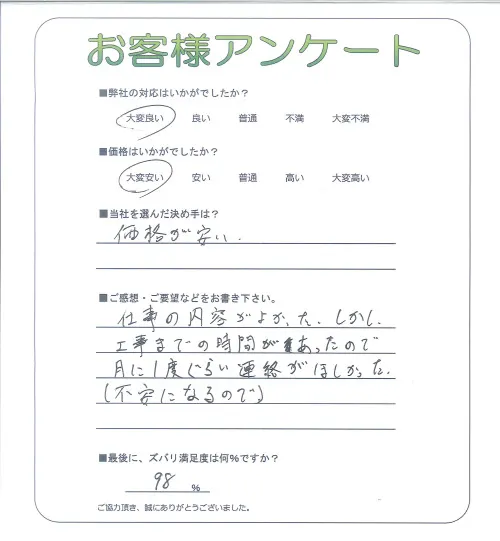 お客様アンケート
■弊社の対応はいかがでしたか？
大変良い 良い 普通 不満 大変不満
■価格はいかがでしたか？
大変安い 安い 普通 高い 大変高い
■当社を選んだ決め手は？
価格が安い.
■ご感想・ご要望などをお書き下さい。
仕事の内容がよかった.しかし.
工事までの時間があったので
月に1度ぐらい連絡がほしかった.
(不安になるので)
■最後に、ズバリ満足度は何％ですか？
98 %
ご協力頂き、誠にありがとうございました。